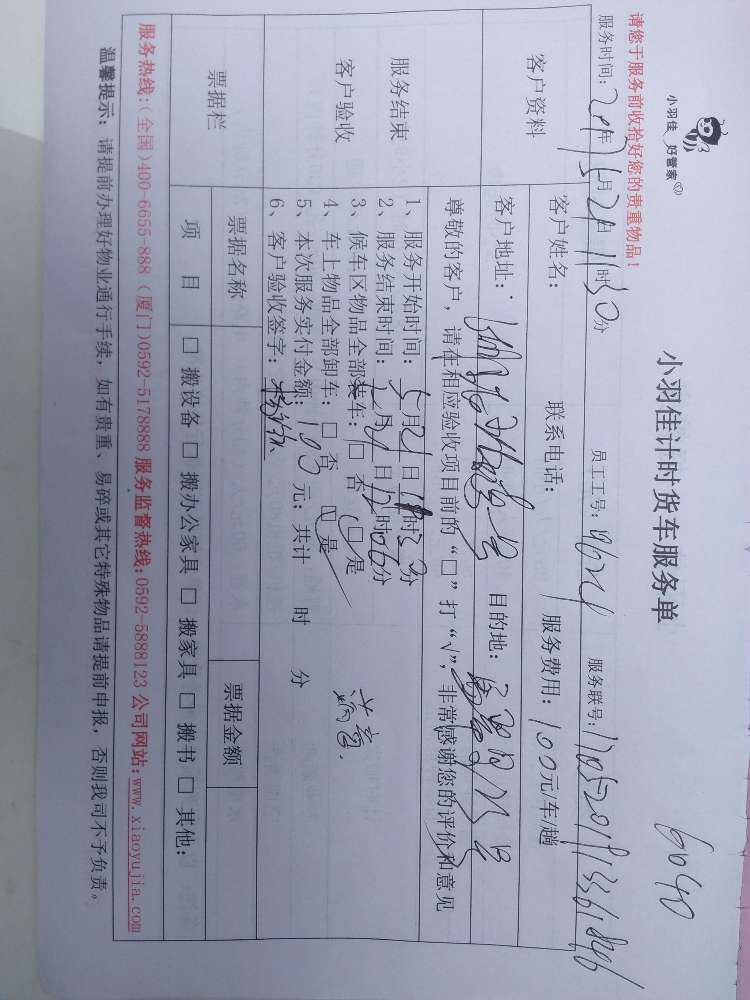 6040
小羽佳 好管家
小羽佳计时货车服务单
请您于服务前收拾好您的贵重物品！
服务时间：2017年5月21日11时30分 员工工号： 服务联号：
客户资料
客户姓名： 联系电话： 服务费用：100元/车/趟
客户地址： 目的地：
尊敬的客户，请在相应验收项目前的“□”打“√”，非常感谢您的评价和意见
服务结束
客户验收
1、服务开始时间：5月21日 时30分
2、服务结束时间：5月21日12时06分
3、候车区物品全部装车：□ 否 □ 是
4、车上物品全部卸车：□ 否 □ 是
5、本次服务实付金额：103元；共计 时 分
6、客户验收签字：
满意
票据栏
票据名称 票据金额
项 目 □ 搬设备 □ 搬办公家具 □ 搬家具 □ 搬书 □ 其他：
服务热线：（全国）400-6655-888（厦门）0592-5178888 服务监督热线：0592-5888123 公司网站：www.xiaoyujia.com
温馨提示：请提前办理好物业通行手续，如有贵重、易碎或其它特殊物品请提前申报，否则我司不予负责。